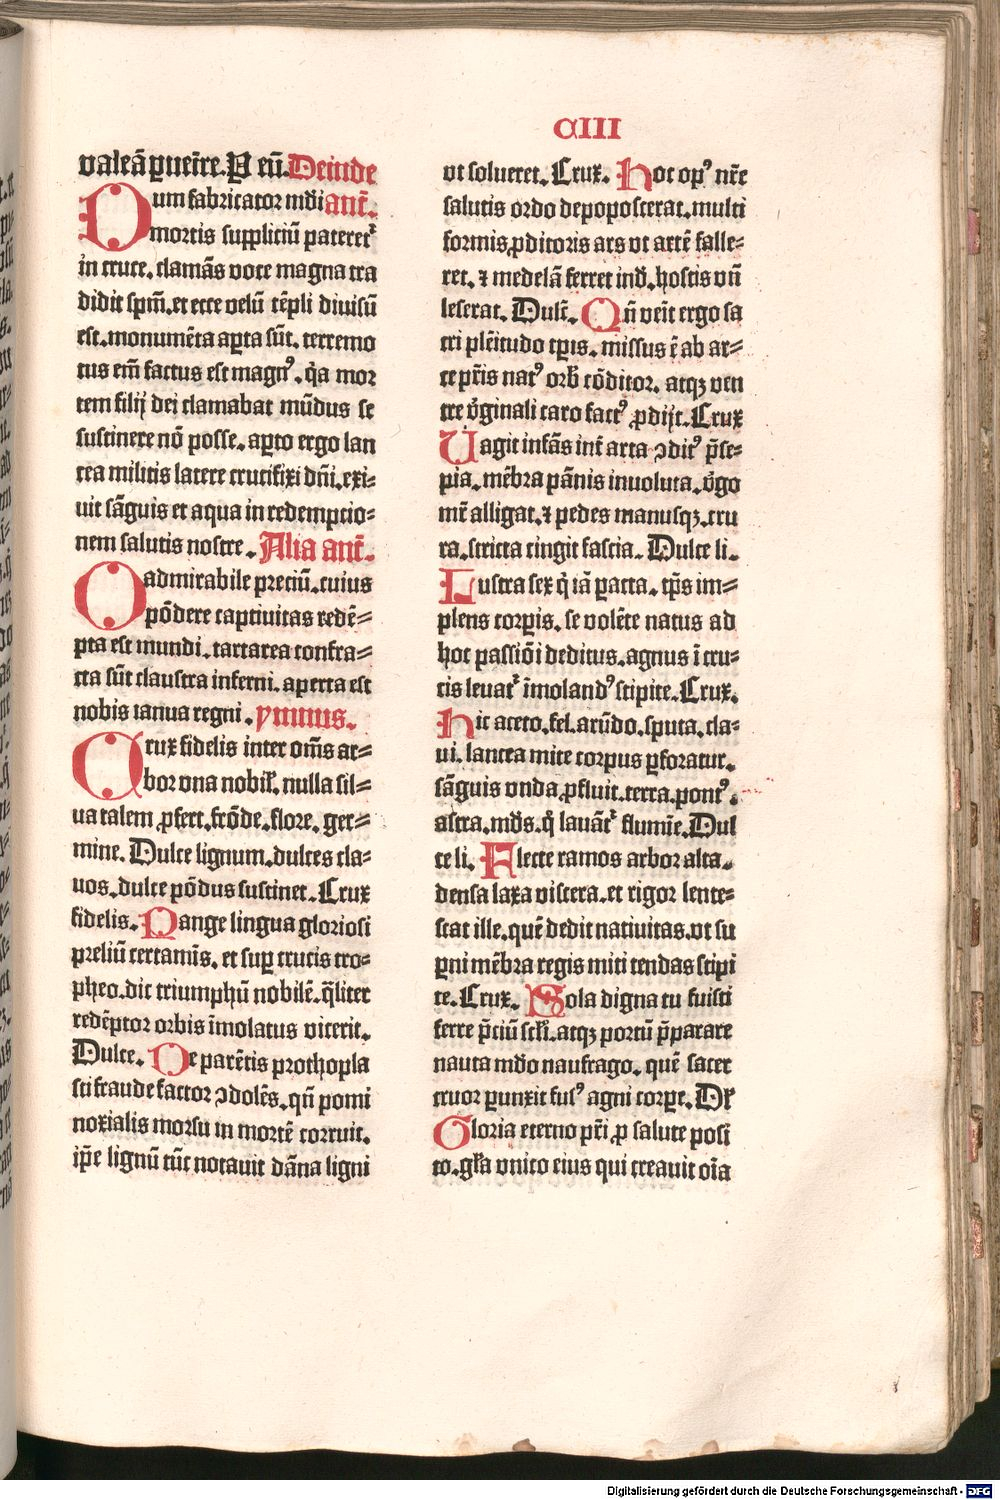 CIII
valeā ꝑueīre. P eū. Deinde
Dum fabricator mūdi ant̄.
mortis suppliciū pateret᷑
in cruce. clamās voce magna tra
didit spm̄. et ecce velū tēpli diuisū
est. monumēta aꝑta sūt. terremo
tus em̄ factus est magn᷒. q̄a mor
tem filij dei clamabat mūdus se
sustinere nō posse. aꝑto ergo lan
cea militis latere crucifixi dn̄i. exi⸗
uit sāguis et aqua in redemptio⸗
nem salutis nostre. Alia ant̄.
O admirabile preciū. cuius
pōdere captiuitas redē⸗
pta est mundi. tartarea confra⸗
cta sūt claustra inferni. aperta est
nobis ianua regni. ymnus.
Crux fidelis inter om̄s ar⸗
bor vna nobil᷑. nulla sil⸗
ua talem ꝓfert. frōde. flore. ger⸗
mine. Dulce lignum. dulces cla⸗
uos. dulce pōdus sustinet. Crux
fidelis. Pange lingua gloriosi
preliū certamīs. et suꝑ crucis tro⸗
pheo. dic triumphū nobilē. q̄liter
redēptor orbis īmolatus vicerit.
Dulce. De parētis prothopla
sti fraude factor ꝯdolēs. qn̄ pomi
noxialis morsu in mortē corruit.
ip̄e lignū tūc notauit dāna ligni
vt solueret. Crux. Hoc op᷒ nr̄e
salutis ordo depoposcerat. multi
formis ꝓditoris ars vt artē falle⸗
ret. ⁊ medelā ferret ind̄. hostis vn̄
leserat. Dulc̄. Qn̄ veīt ergo sa
cri plēitudo tꝑis. missus ē ab ar⸗
ce pr̄is nat᷒ orb̄ cōditor. atqꝫ ven
tre v̄ginali caro fact᷒ ꝓdijt. Crux
Uagit infās int̄ arta ꝯdit᷒ p̄se⸗
pia. mēbra pānis inuoluta. v̄go
mr̄ alligat. ⁊ pedes manusqꝫ. cru
ra. stricta cingit fascia. Dulce li.
Lustra sex q̇ iā ꝑacta. tp̄s im⸗
plens corꝑis. se volēte natus ad
hoc passiōi deditus. agnus ī cru⸗
cis leuat᷑ īmoland᷒ stipite. Crux.
Hic aceto. fel. arūdo. sputa. cla⸗
ui. lancea mite corpus ꝑforatur.
sāguis vnda ꝓfluit. terra. pont᷒.
astra. mūds. q̇ lauāt᷑ flumīe. Dul
ce li. Flecte ramos arbor alta.
densa laxa viscera. et rigor lente⸗
scat ille. quē dedit natiuitas. vt su
ꝑni mēbra regis miti tendas stipi
te. Crux. Sola digna tu fuisti
ferre p̄ciū scl̄i. atqꝫ portū p̄parare
nauta mūdo naufrago. quē sacer
cruor ꝑunxit fus᷒ agni corꝑe. Dl᷑
Gloria eterno pr̄i ꝓ salute posi
to. gl̄a vnico eius qui creauit oīa
Digitalisierung gefördert durch die Deutsche Forschungsgemeinschaft - DFG